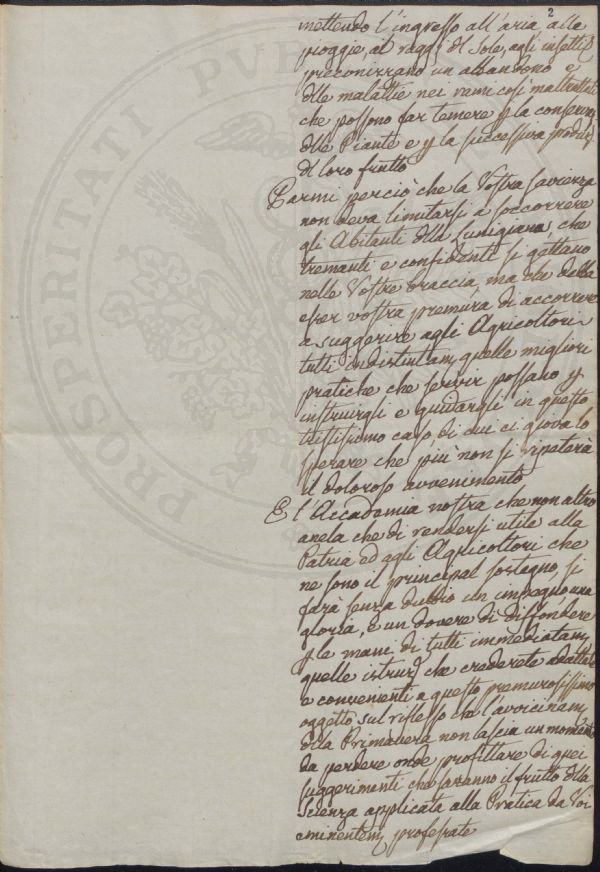 2
mettendo l'ingresso all'aria alle
pioggie, ai raggi del Sole, agli insetti,
preconizzano un abbandono e
delle malattie nei rami così maltrattati
che possono far temere p la conservaz
delle Piante e p la successiva produz
di loro frutto
Parmi perciò che la Vostra saviezza
non deva limitarsi a soccorrere
gli Abitanti della Lunigiana, che
tremanti e confidenti si gettano
nelle Vostre braccia, ma che debba
esser vostra premura di accorrere
a suggerire agli Agricoltori
tutti indistintam quelle migliori
pratiche che servir possano p
instruirgli e guidargli in questo
tristissimo caso di cui ci giova lo
sperare che più non si ripeterà
il doloroso avvenimento
E l'Accademia nostra che non altro
anela che di rendersi utile alla
Patria ed agli Agricoltori che
ne sono il principal sostegno, si
farà senza dubbio un impegno una
gloria, e un dovere di diffondere
p le mani di tutti immediatam
quelle istruz che crederete adattate
e convenienti a questo premurosissimo
oggetto, sul riflesso che l'avvicinam
della Primavera non lascia un momento
da perdere onde profittare di quei
suggerimenti che saranno il frutto della
Scienza applicata alla Pratica da Voi
eminentem professate
PROSPERITATI PUB